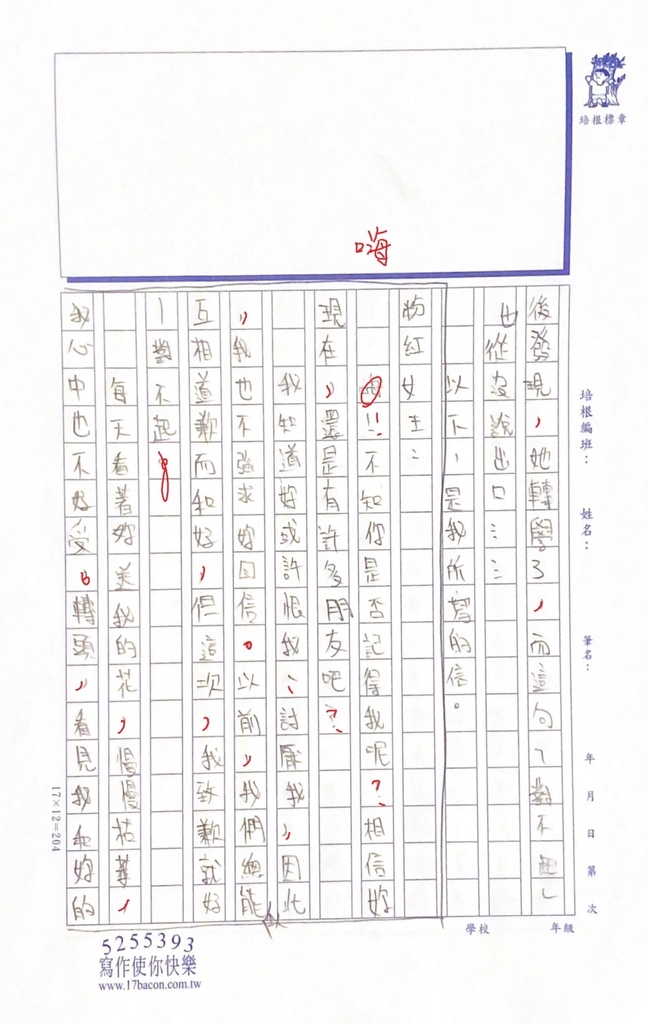 嗨
後發現，她轉學了，而這句「對不起」
也從沒說出口……
以下，是我所寫的信。
粉紅女王：
！！不知你是否記得我呢？相信妳
現在，還是有許多朋友吧？
我知道妳或許恨我、討厭我，因此
，我也不強求妳回信。以前，我們總能
互相道歉而和好，但這次，我致歉就好
－對不起。
每天看著妳送我的花，慢慢枯萎，
我心中也不好受。轉頭，看見我和妳的
培根標章
培根編班：
姓名：
筆名：
年 月 日 第 次
學校 年級
17×12=204
5255393
寫作使你快樂
www.17bacon.com.tw